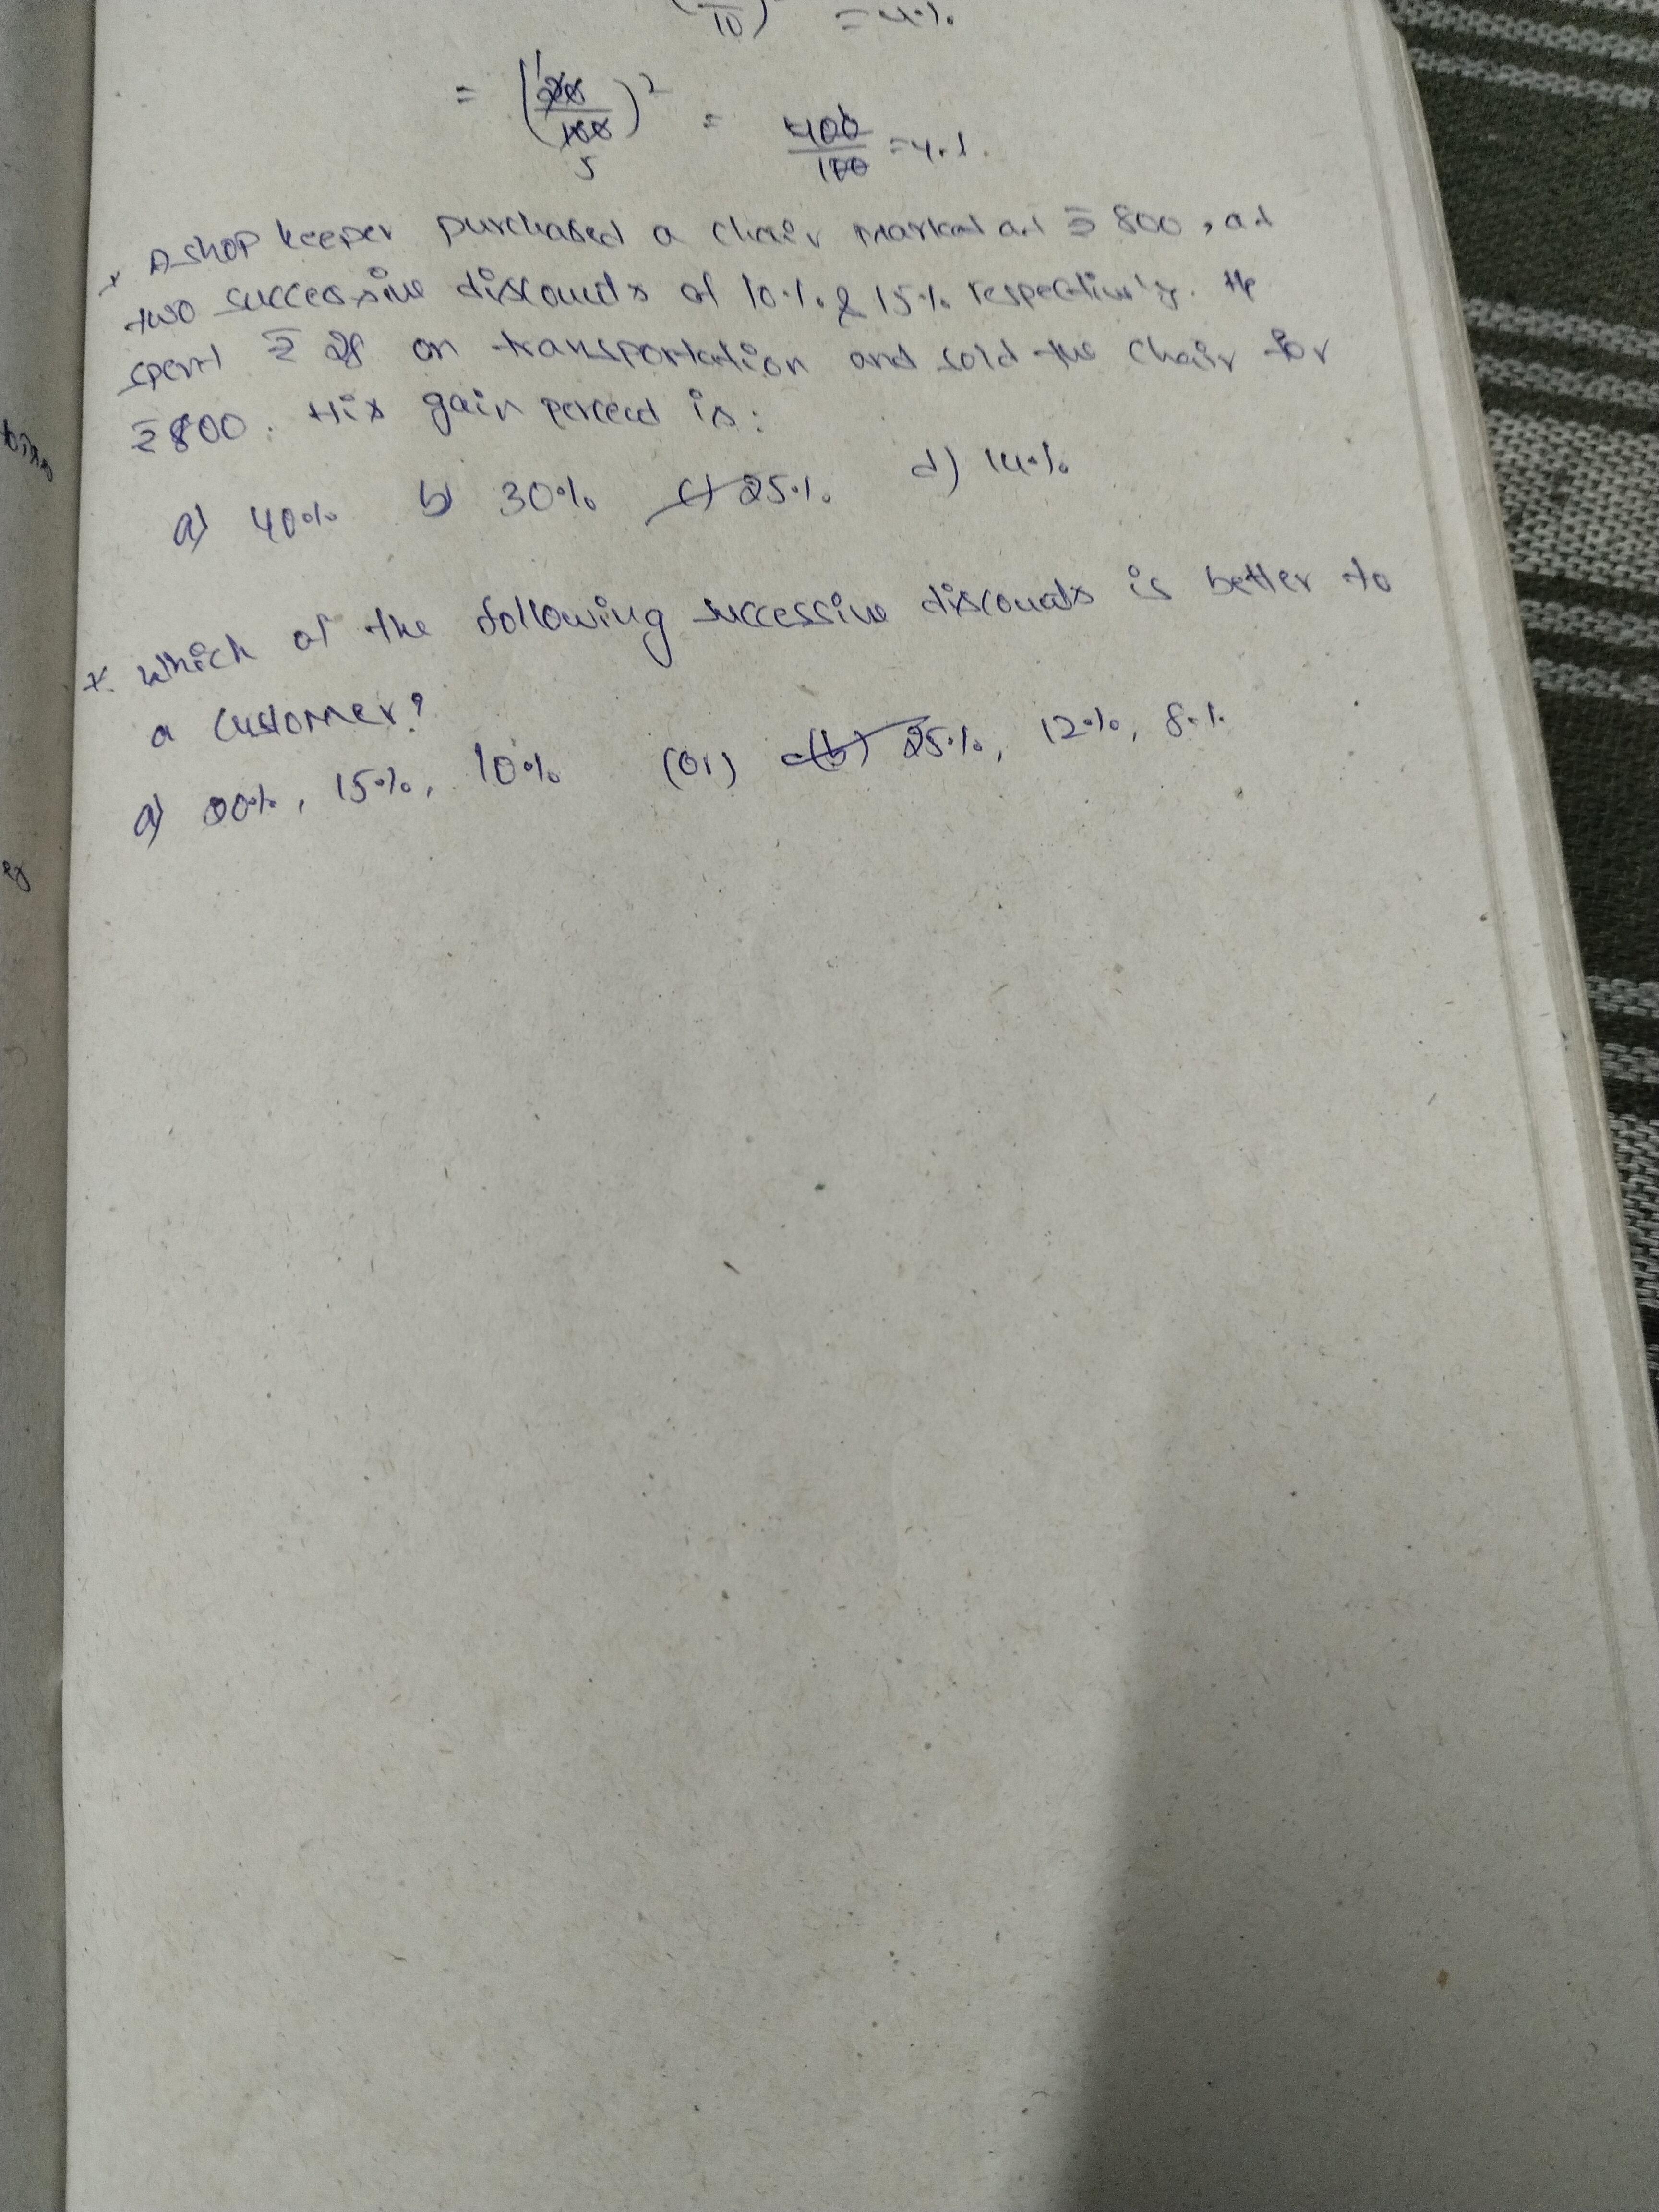 10) = 4%
= (200/100)² = 400/100 = 4%.
5
* A shop keeper purchased a chair marked at ₹ 800, at
two successive discounts of 10% & 15% respectively. He
spent ₹ 28 on transportation and sold the chair for
₹ 800. His gain percent is:
a) 40% b) 30% c) 25% d) 14%
* which of the following successive discounts is better to
a customer?
a) 20%, 15%, 10% (or) (b) 25%, 12%, 8%